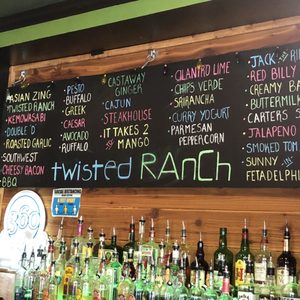 ASIAN ZING
TWISTED RANCH
KEMOWASABI
DOUBLE 'D'
ROASTED GARLIC
SOUTHWEST
CHEESY BACON
BBQ
PESTO
BUFFALO
GREEK
CAESAR
AVOCADO
BUFFALO
CASTAWAY
GINGER
CAJUN
STEAKHOUSE
IT TAKES 2
MANGO
CILANTRO LIME
CHIPS VERDE
SRIRANCHA
CURRY YOGURT
PARMESAN
PEPPERCORN
JACK
RED BILLY
CREAMY
BUTTERMIL
CARTERS
JALAPENO
SMOKED TOM
SUNNY
FETADELPH
twisted RANCH
360